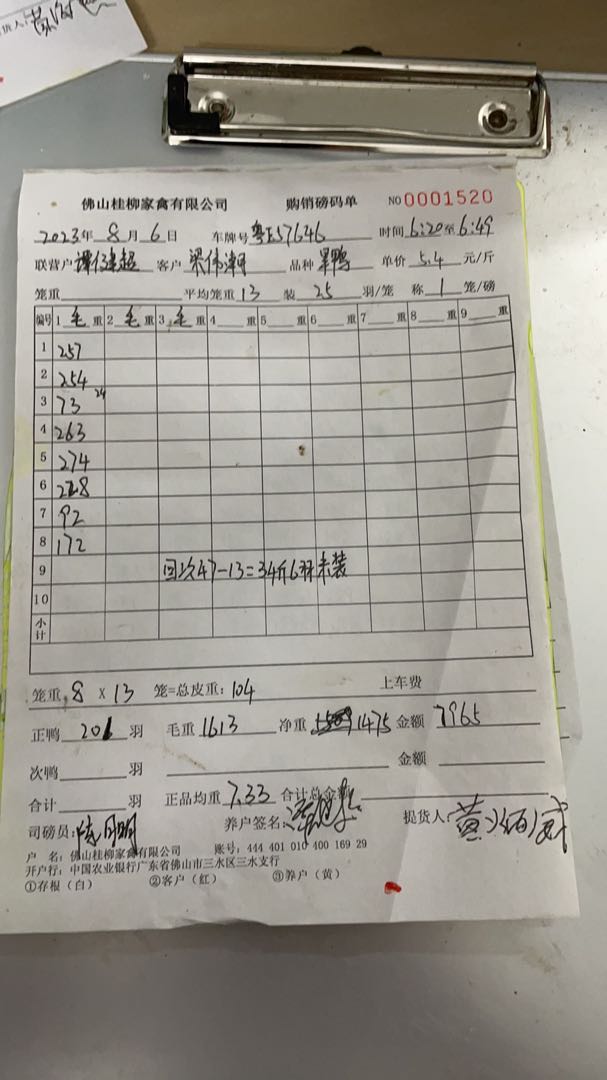 货人:
佛山桂柳家禽有限公司 购销磅码单 NO 0001520
2023年 8月 6日 车牌号 粤E57646 时间 6:20至6:49
联营户 客户 梁伟潮 品种 单价 5.4 元/斤
笼重 平均笼重 13 装 25 羽/笼 称 1 笼/磅
编号 1 毛 重 2 毛 重 3 毛 重 4 重 5 重 6 重 7 重 8 重 9 重
1 257
2 254
3 73 24
4 263
5 274
6 228
7 92
8 172
9 回次47-13=34斤6羽未装
10
小计
笼重 8 X 13 笼=总皮重: 104 上车费
正鸭 201 羽 毛重 1613 净重 1475 金额 7965
次鸭 羽 金额
合计 羽 正品均重 7.33 合计总金额
司磅员: 养户签名: 提货人 黄炳威
户 名: 佛山桂柳家禽有限公司 账号: 444 401 010 400 169 29
开户行: 中国农业银行广东省佛山市三水区三水支行
①存根（白） ②客户（红） ③养户（黄）